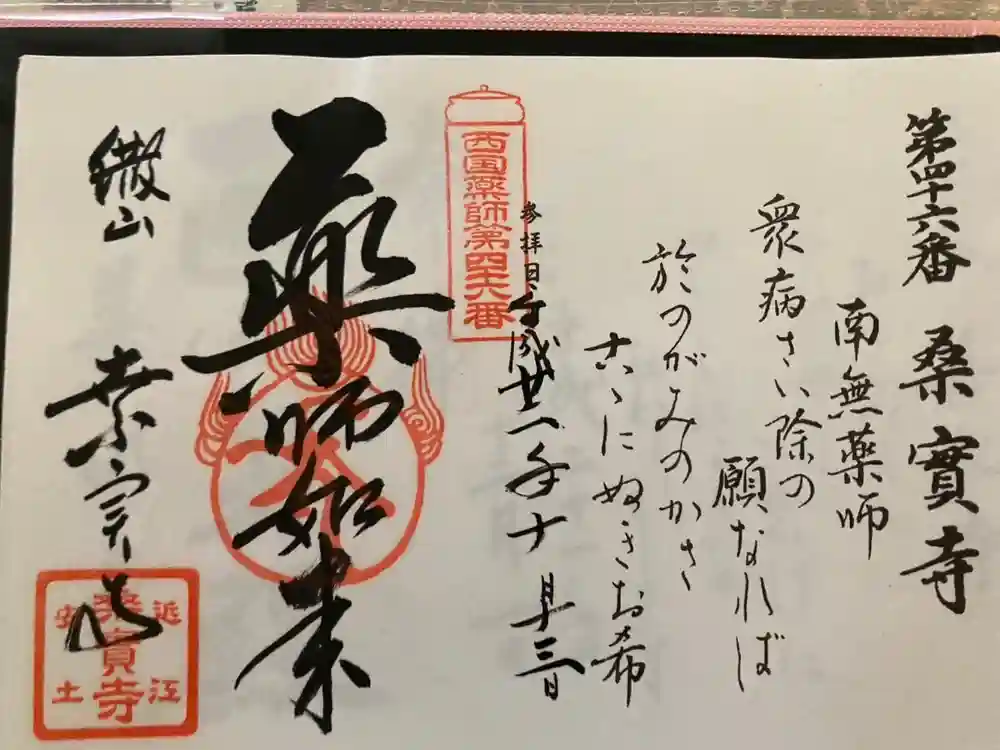 第四十六番 桑實寺
南無薬師
衆病さい除の
願なれば
於のがみのかさ
古ゝにぬぎお希
参拝日
平成廿一年十月十三日
西国薬師第四十六番
薬師如来
繖山
桑實寺
近江
桑實寺
安土